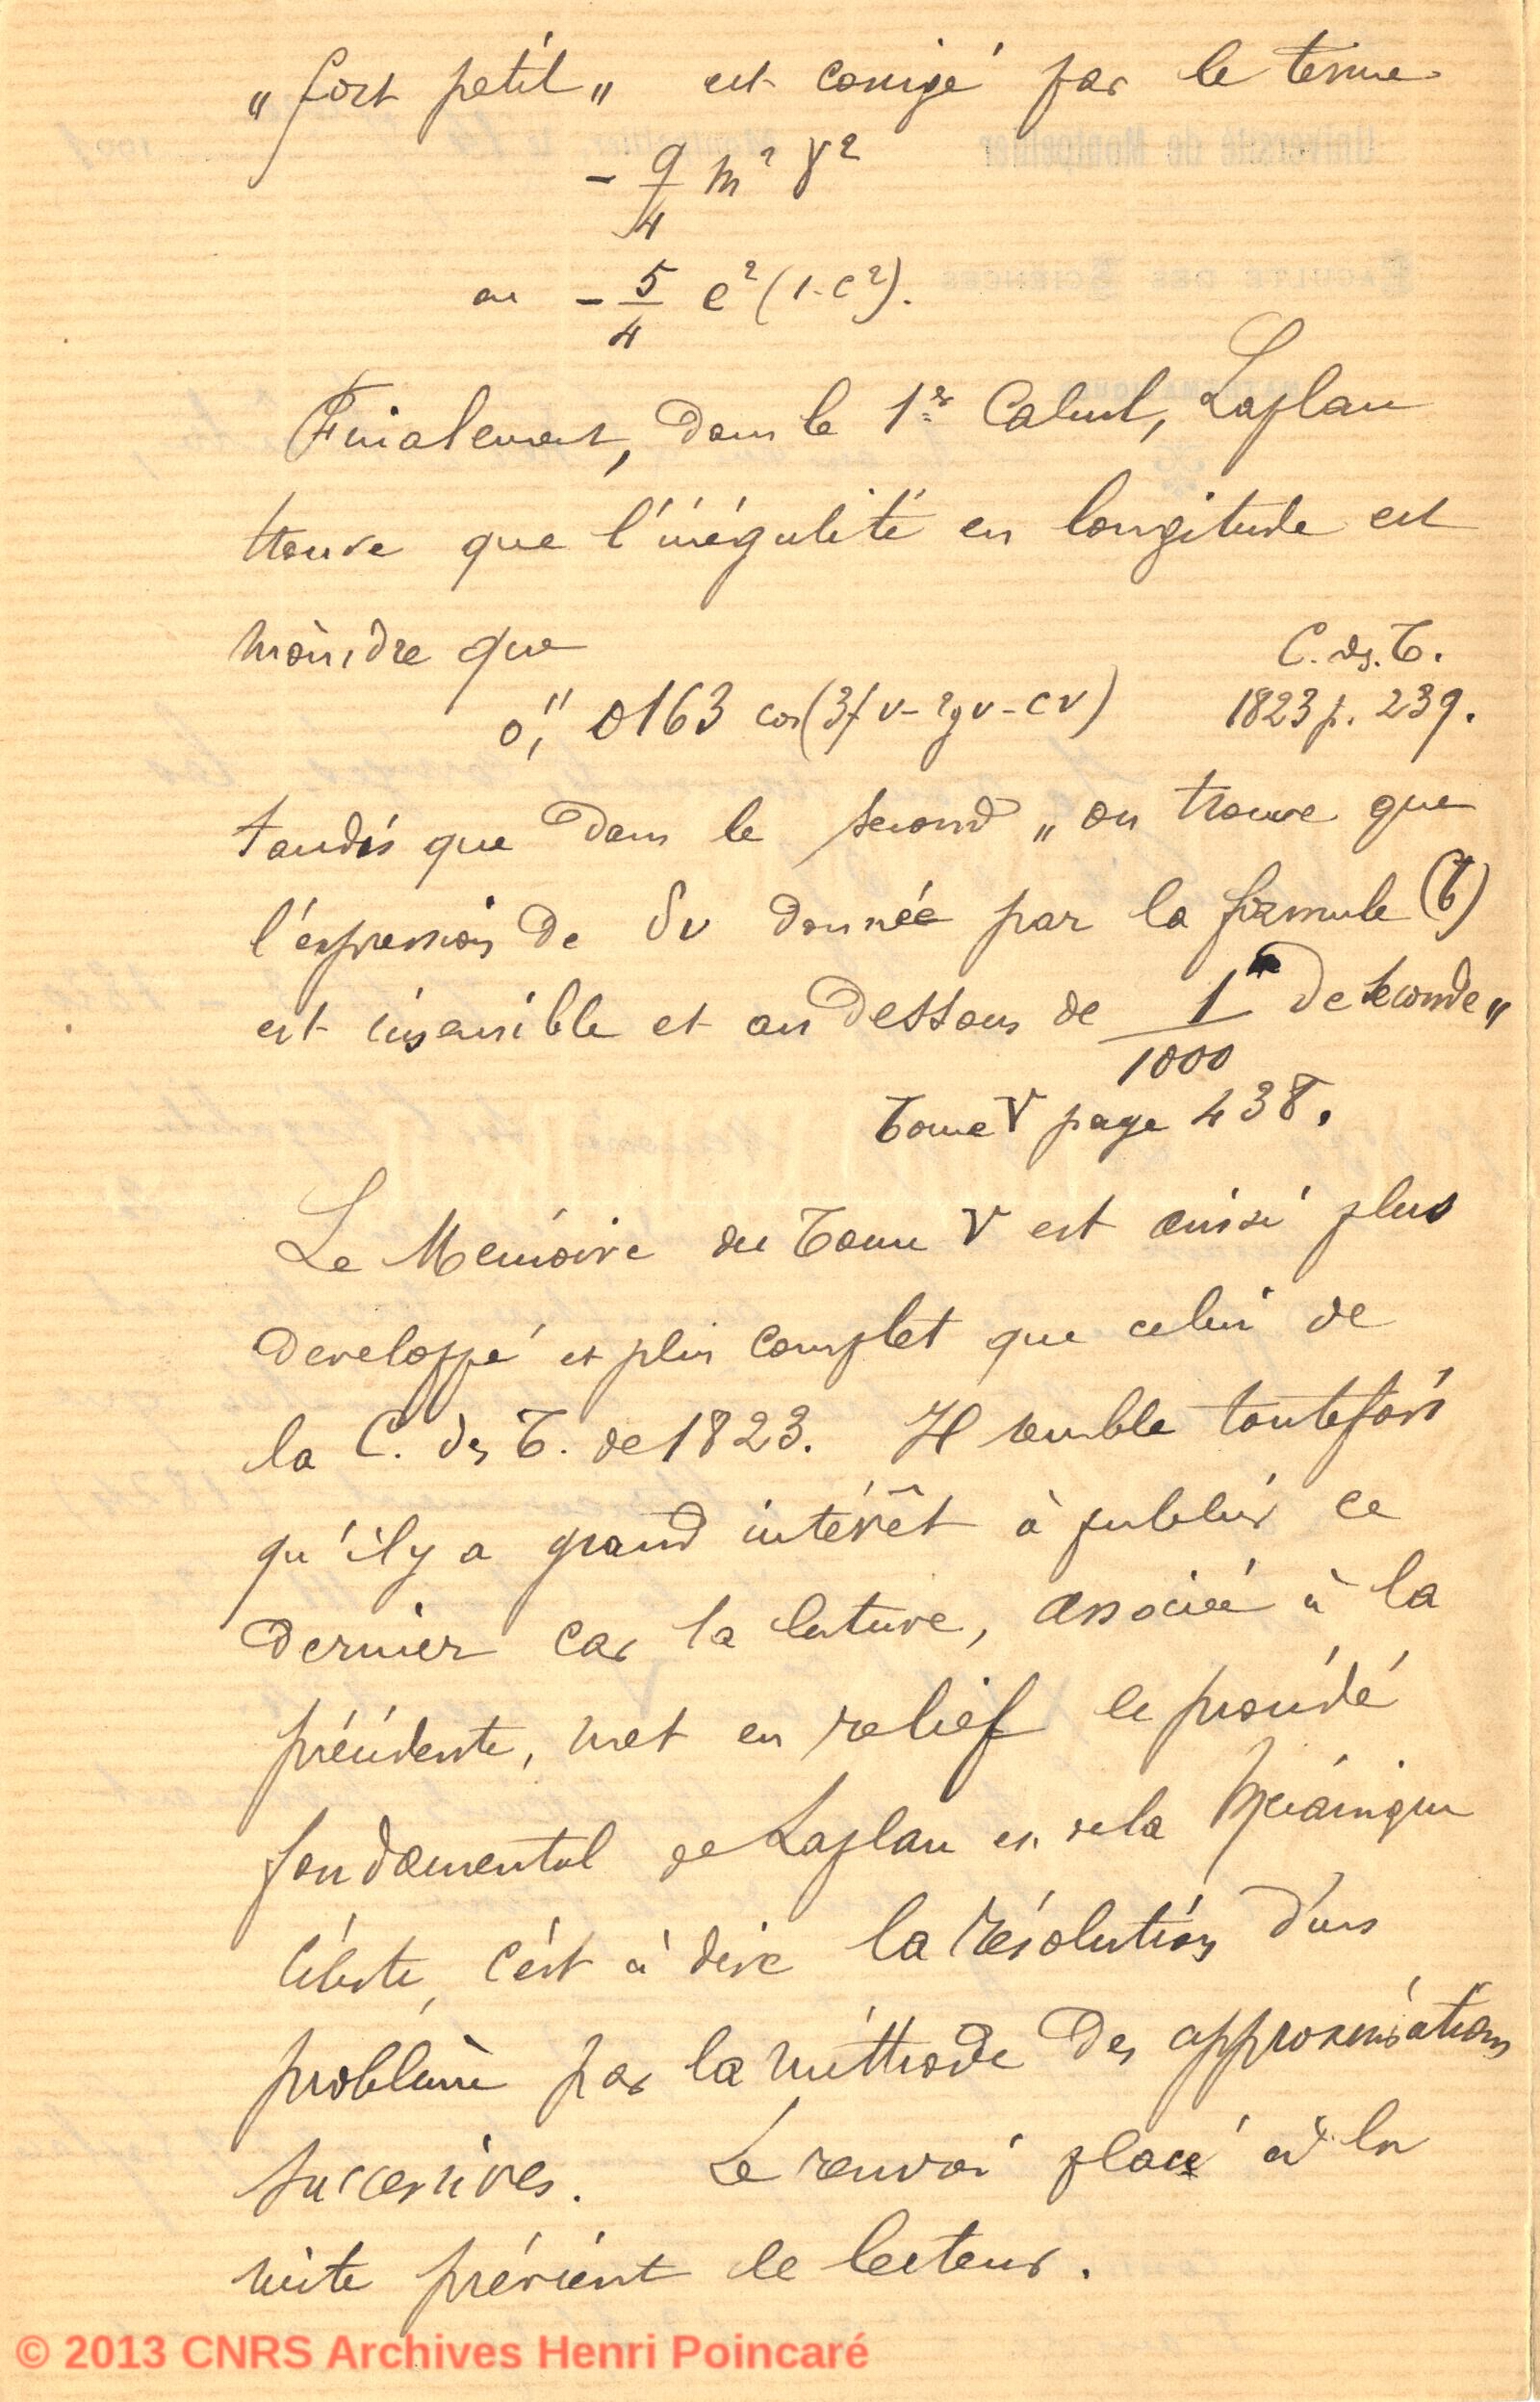 „ fort petit „ est corrigé par le terme
- 9/4 m² γ²
ou - 5/4 e² (1-c²).
Finalement, dans le 1er Calcul, Laplace
trouve que l'inégalité en longitude est
moindre que
C. des. T.
0,"0163 cos(3fv-2gv-cv) 1823 p. 239.
tandis que dans le second „ on trouve que
l'expression de δv donnée par la formule (6)
est insensible et au dessous de 1/1000 de seconde „
Tome V page 438.
Le Memoire du Tome V est aussi plus
developpé et plus complet que celui de
la C. des T. de 1823. Il semble toutefois
qu'il y a grand intérêt à publier ce
dernier car la lecture, associée à la
précédente, met en relief le procédé
fondamental de Laplace en sa Mécanique
Céleste, c'est à dire la résolution d'un
problème par la méthode des approximations
successives. Le renvoi placé à la
suite prévient le lecteur.
© 2013 CNRS Archives Henri Poincaré